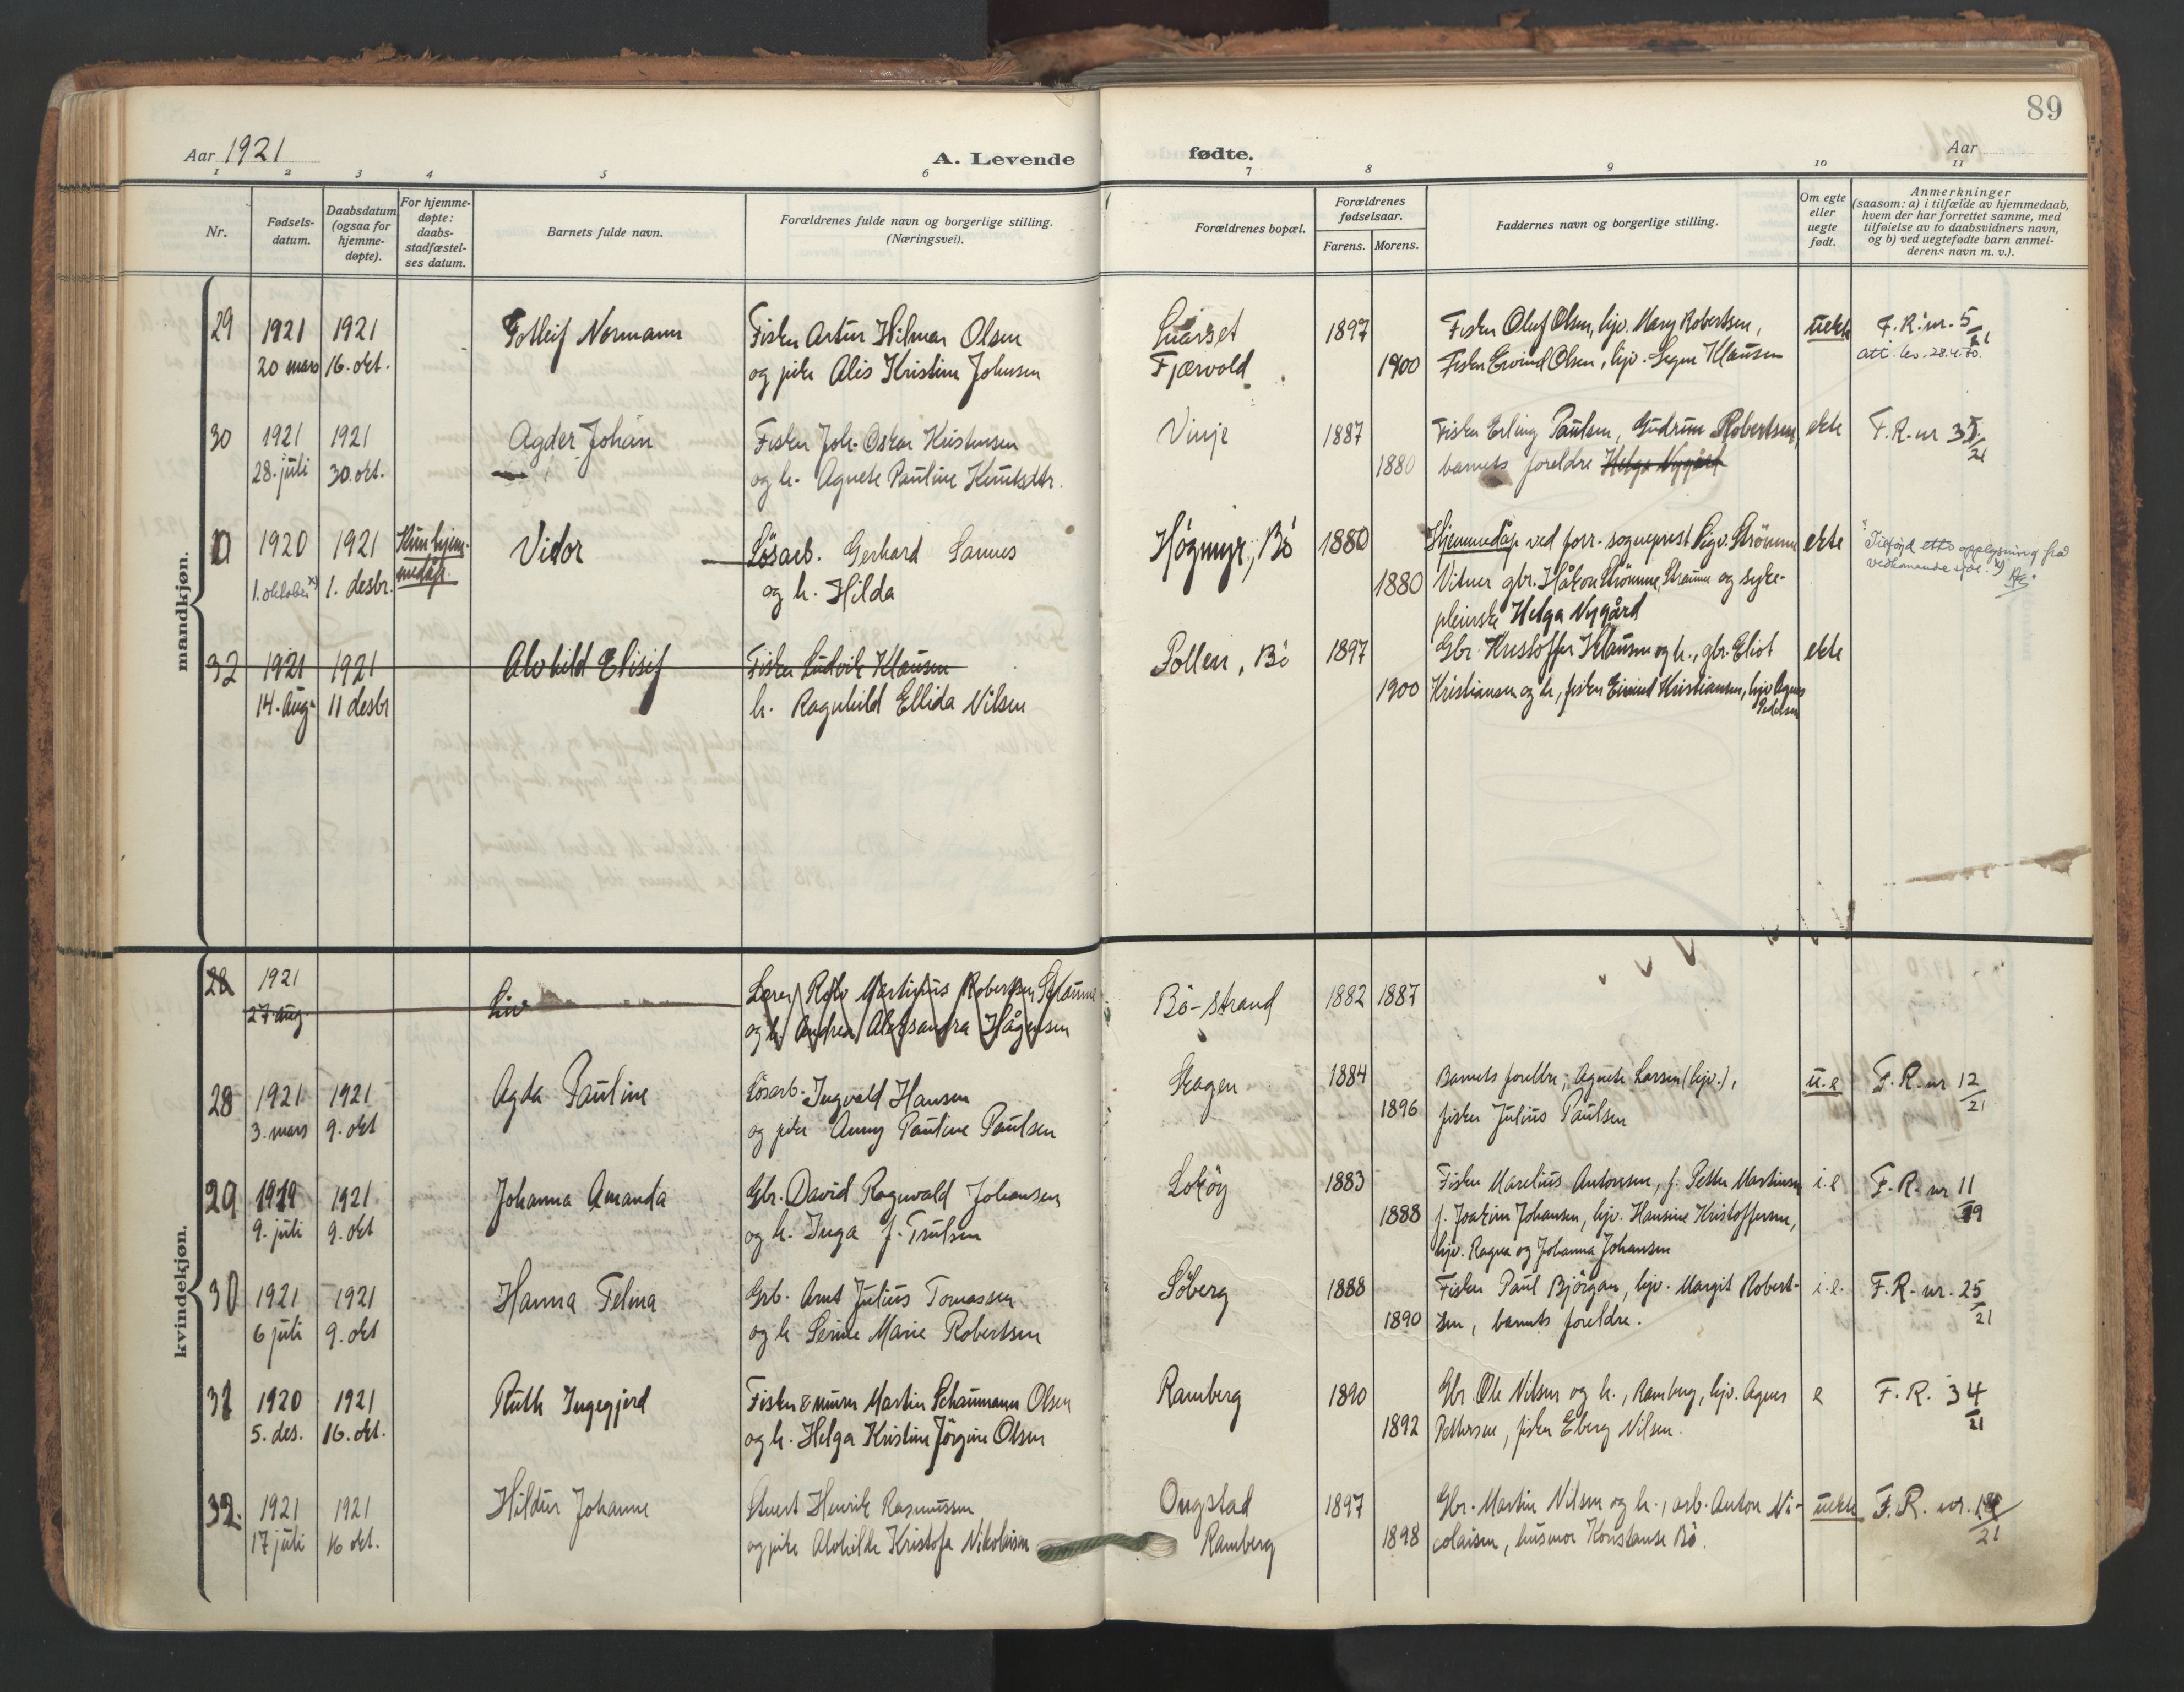 89
Aar 1921
A. Levende
fødte.
Aar
1 2 3 4 5 6 7 8 9 10 11
Nr.
Fødselsdatum.
Daabsdatum (ogsaa for hjemmedøpte).
For hjemmedøpte: daabsstadfæstelses datum.
Barnets fulde navn.
Forældrenes fulde navn og borgerlige stilling. (Næringsvei).
Forældrenes bopæl.
Forældrenes fødselsaar.
Farens. Morens.
Faddernes navn og borgerlige stilling.
Om egte eller uegte født.
Anmerkninger (saasom: a) i tilfælde av hjemmedaab, hvem der har forrettet samme, med tilføielse av to daabsvidners navn, og b) ved uegtefødte barn anmelderens navn m. v.).
mandkjøn.
29 1921 1921 Normann Fisker Artur Hilmar Olsen 1897 Fisker Oluf Olsen, hjv. Mary Robertsen, uekte F. R. nr. 5/21
20 mars 16. okt. og pike Alis Kristine Johnsen Fjærvold 1900 Fisker Eivind Olsen, hjv. Klausen att. lev. 28.4.70.
30 1921 1921 Agder Johan Fisker Joh. Oskar Kristensen Vinje 1887 Fisker Erling Paulsen, Gudrun Robertsen, ekte F. R. nr
28. juli 30. okt. og h. Agnete Pauline 1880 barnets foreldre Helga Nygård 21
1920 1921 Kun hjem- Vidor Løsarb. Gerhard Sannes Høgmyr, Bö 1880 Hjemmedåp ved forr. sogneprest Sigv. Strömme ekte Tilføid etter opplysning fra
1. oktober x) 1. desbr. medåp. og h. Hilda 1880 Vitner gbr. Håkon Strömme, Straume og syke- vedkomande sjøl. x)
pleierske Helga Nygård
32 1921 1921 Alvhild Elisif Fisker Ludvik Klausen Pollen, Bö 1897 Gbr. Kristoffer Klausen og h., gbr. Eliot ekte
14. aug. 11 desbr h. Ragnhild Ellida Nilsen 1900 Kristiansen og h., fisker Eivind Kristiansen, hjv Agnes
Pedersen
kvindekjøn.
28 1921 Liv Lærer Rolv Martinius Robertsen Straume Bö-strand 1882 1887
27. aug. og h. Andrea Aleksandra Hågensen
28 1921 1921 Agda Pauline Løsarb. Ingvald Hansen Skagen 1884 Barnets foreldre, Agnete Larsen (hjv.), u.e F. R. nr 12/21
3. mars 9. okt og pike Anny Pauline Paulsen 1896 fisker Julius Paulsen
29 1919 1921 Johanna Amanda Gbr. David Ragnvald Johansen 1883 Fisker Marelius Antonsen, f. Petter Martinsen i.e F. R. nr 11/19
9. juli 9. okt og h. Inga f. Trulsen 1888 f. Joakim Johansen, hjv. Hansine Kristoffersen,
hjv. Ragna og Johanna Johansen
30 1921 1921 Hanna Telma Grb. Arnt Julius Tomassen Söberg 1888 Fisker Paul Björgan, hjv. Margit Robert- i.e. F. R. nr. 25/21
6 juli 9. okt og h Serine Marie Robertsen 1890 sen, barnets foreldre.
31 1920 1921 Ruth Ingegjerd Fisker & murer Martin Schaumann Olsen Ramberg 1890 Gbr Ole Nilsen og h., Ramberg, hjv. Agnes e F. R. 34/21
5. des. 16. okt. og h. Helga Kristine Jörgine Olsen 1892 Pettersen, fisker Eberg Nilsen.
32. 1921 1921 Hildur Johanne Henrik Rasmussen Ongstad 1897 Gbr. Martin Nilsen og h., arb. Anton Ni- uekte F. R. nr.
17 juli 16 okt. og pike Alvhilde Kristofa Nikolaisen Ramberg 1898 colaisen, husmor Konstanse Bö. 21